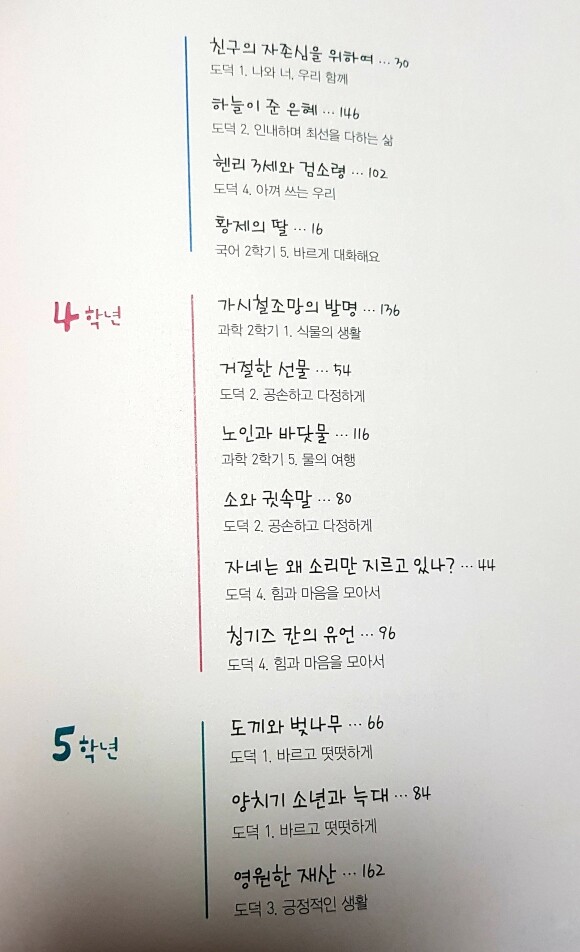 친구의 자존심을 위하여 … 30
도덕 1. 나와 너, 우리 함께
하늘이 준 은혜 … 146
도덕 2. 인내하며 최선을 다하는 삶
헨리 3세와 검소령 … 102
도덕 4. 아껴 쓰는 우리
황제의 딸 … 16
국어 2학기 5. 바르게 대화해요
4학년
가시철조망의 발명 … 136
과학 2학기 1. 식물의 생활
거절한 선물 … 54
도덕 2. 공손하고 다정하게
노인과 바닷물 … 116
과학 2학기 5. 물의 여행
소와 귓속말 … 80
도덕 2. 공손하고 다정하게
자네는 왜 소리만 지르고 있나? … 44
도덕 4. 힘과 마음을 모아서
칭기즈 칸의 유언 … 96
도덕 4. 힘과 마음을 모아서
5학년
도끼와 벚나무 … 66
도덕 1. 바르고 떳떳하게
양치기 소년과 늑대 … 84
도덕 1. 바르고 떳떳하게
영원한 재산 … 162
도덕 3. 긍정적인 생활